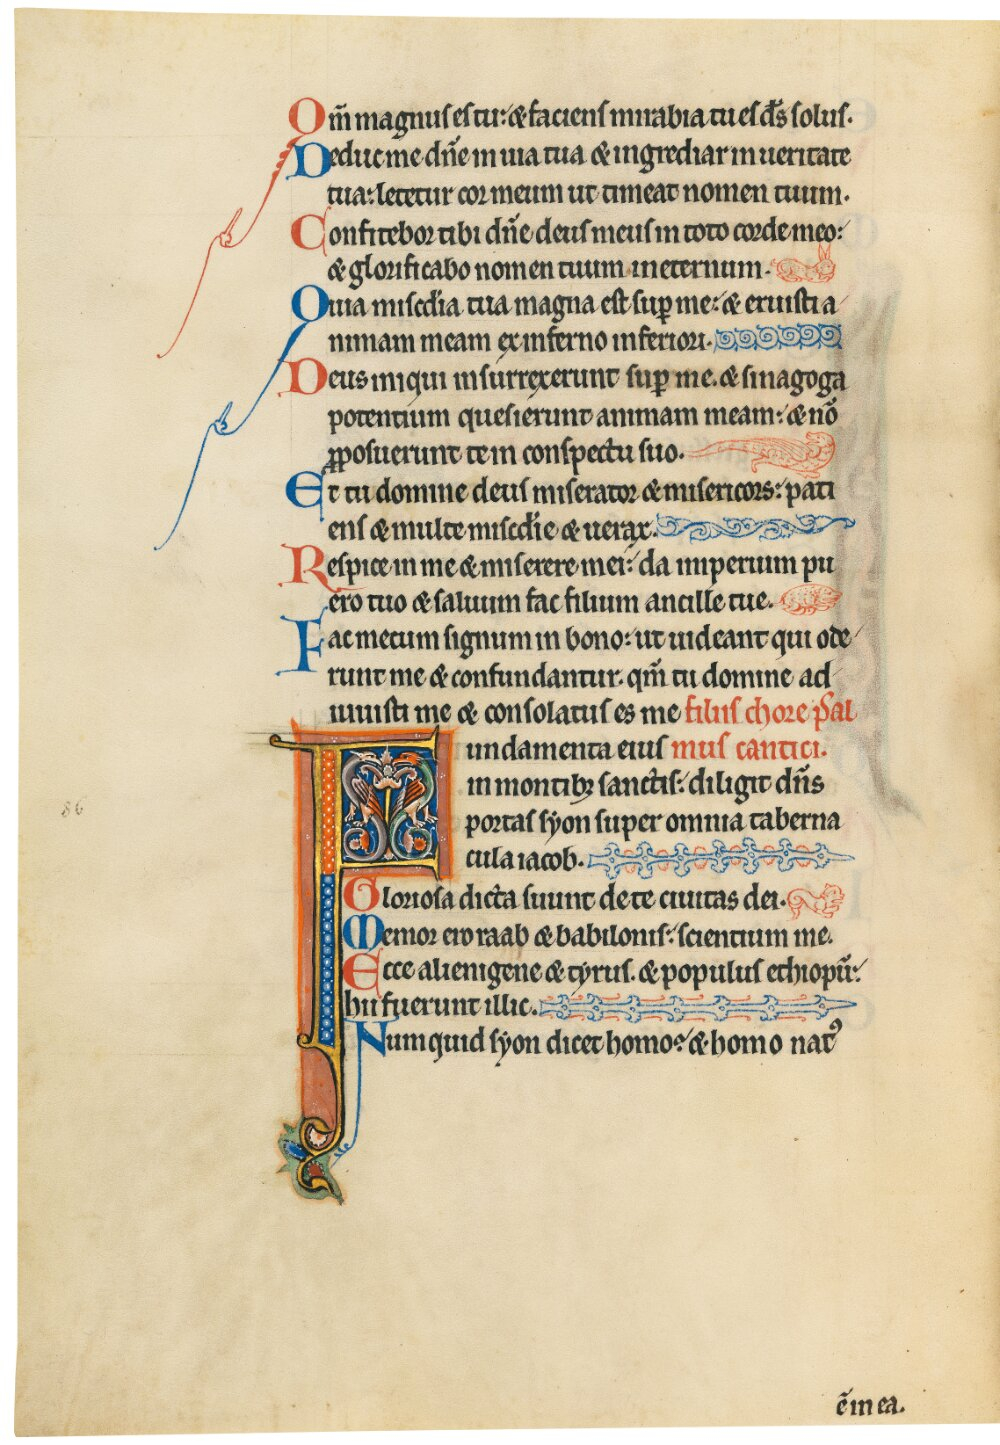 Om̄ magnus es tu: & faciens mirabia tu es ds̄ solus.
Deduc me dn̄e in uia tua & ingrediar in ueritate
tua: letetur cor meum ut timeat nomen tuum.
Confitebor tibi dn̄e deus meus in toto corde meo:
& glorificabo nomen tuum in eternum.
Quia misc̄dia tua magna est sup̄ me: & eruisti a
nimam meam ex inferno inferiori.
Deus iniqui insurrexerunt sup̄ me. & sinagoga
potentium quesierunt animam meam: & nō
ꝓposuerunt te in conspectu suo.
Et tu domine deus miserator & misericors: pati
ens & multe misc̄die & uerax.
Respice in me & miserere mei: da imperium pu
ero tuo & saluum fac filium ancille tue.
Fac mecum signum in bono: ut uideant qui ode
runt me & confundantur. qm̄ tu domine ad
iuuisti me & consolatus es me filiis chore psal
Fundamenta eius mus cantici.
in montibꝫ sanctis: diligit dn̄s
portas syon super omnia taberna
cula iacob.
Gloriosa dicta suunt de te ciuitas dei.
Memor ero raab & babilonis: scientium me.
Ecce alienigene & tyrus. & populus ethiopū:
hii fuerunt illic.
Numquid syon dicet homo: & homo natꝰ
86
ē in ea.